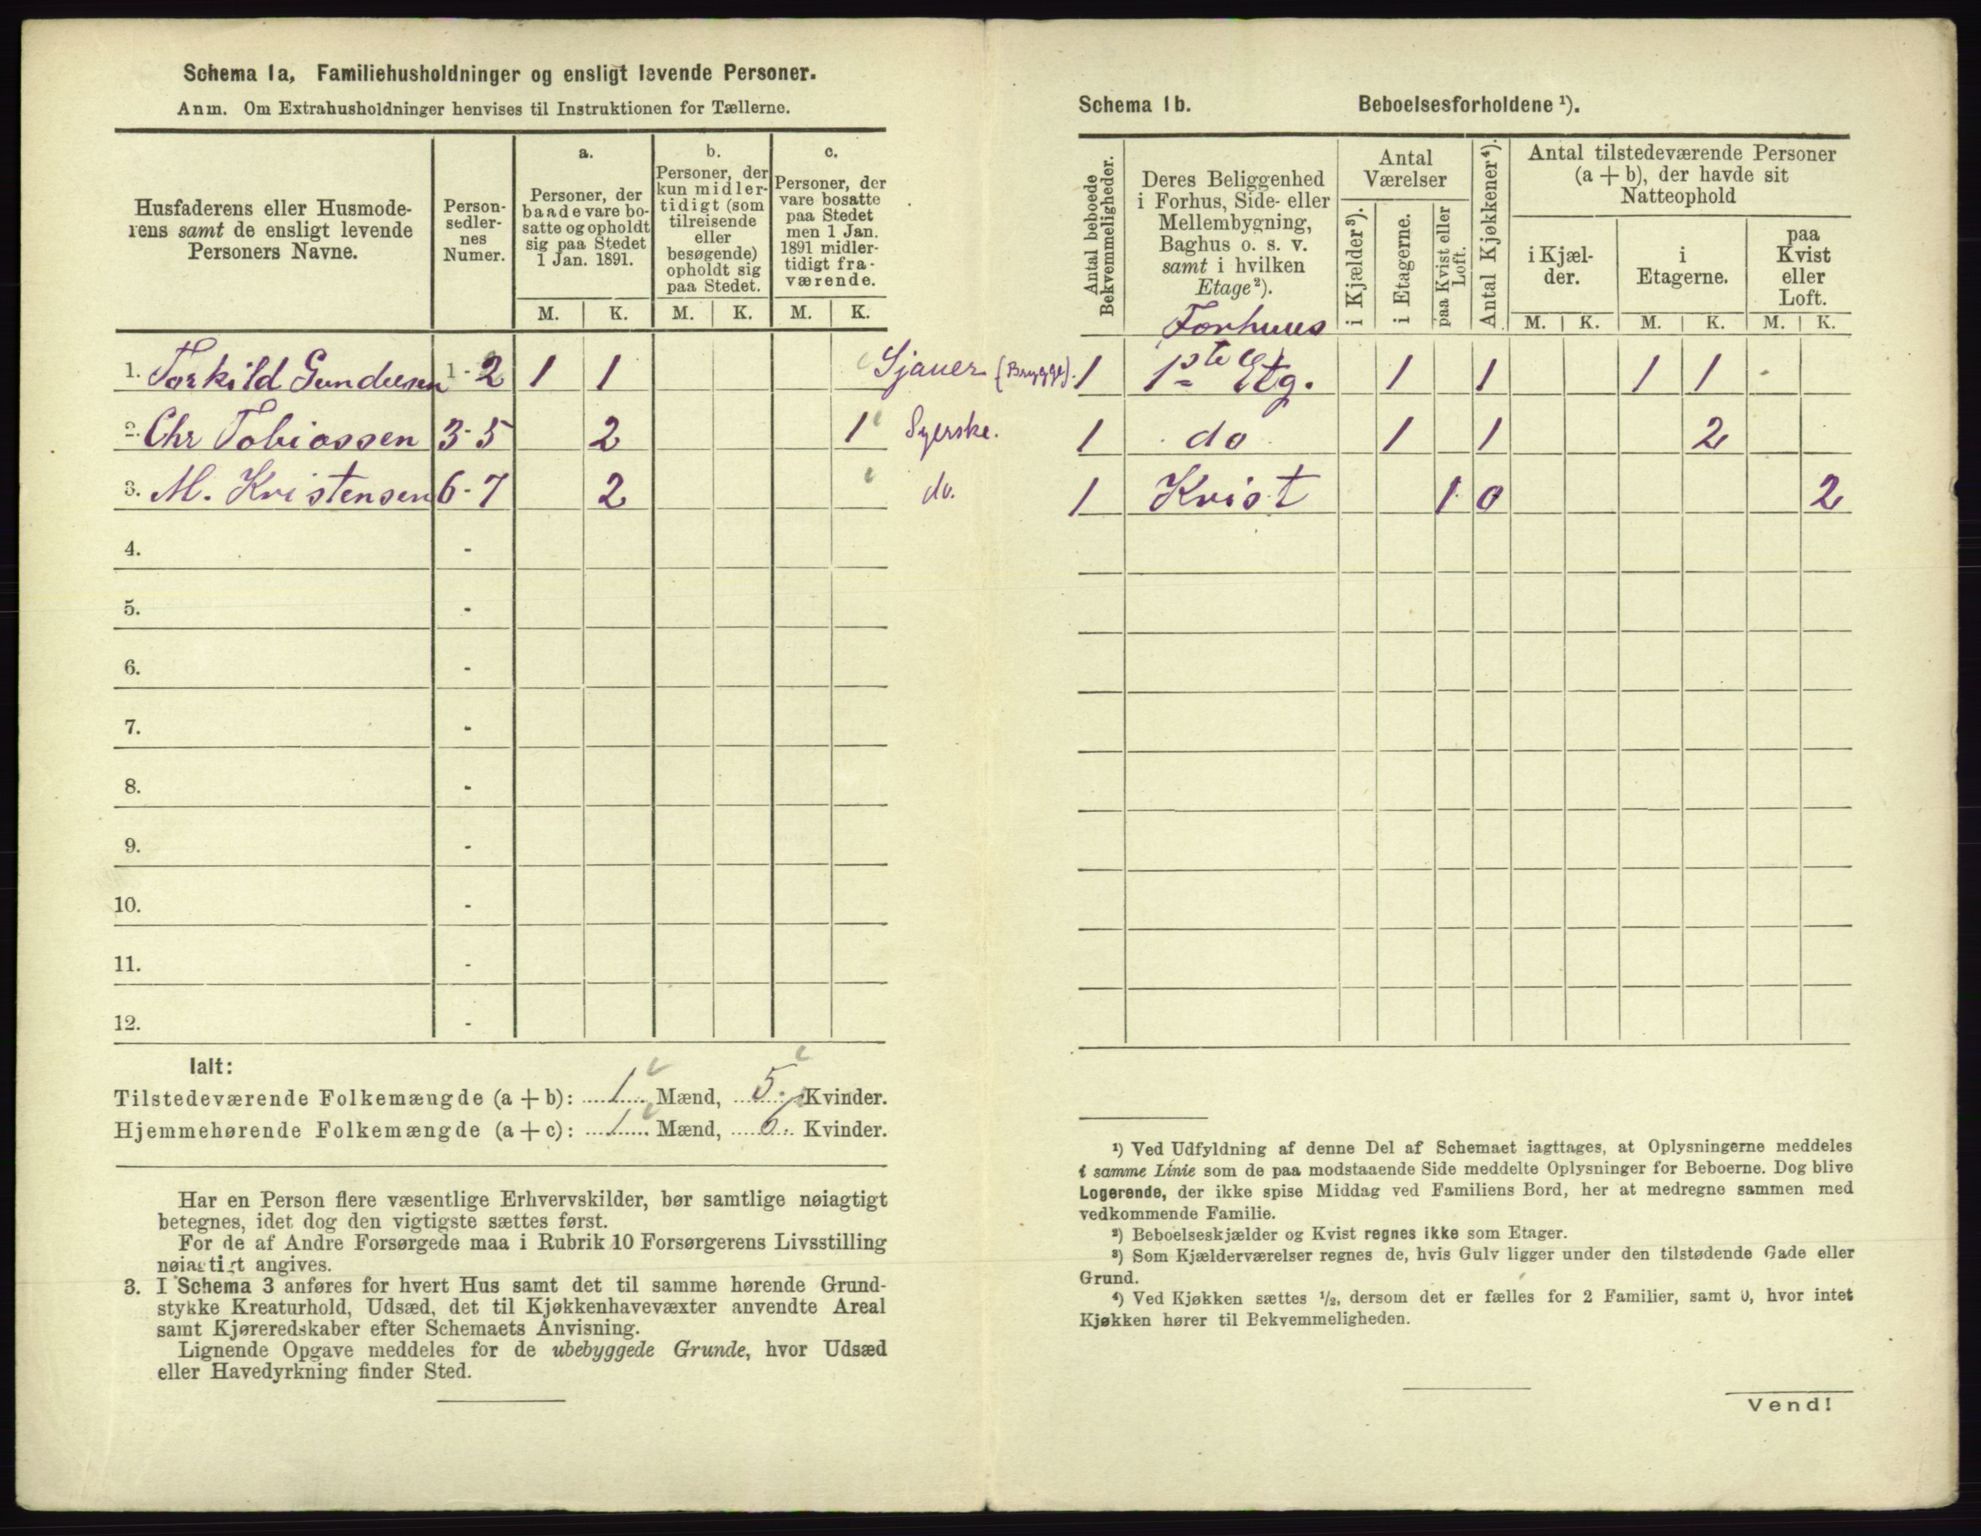 Schema 1a, Familiehusholdninger og ensligt levende Personer.
Anm. Om Extrahusholdninger henvises til Instruktionen for Tællerne.
Husfaderens eller Husmode-
rens samt de ensligt levende
Personers Navne.
Person-
sedler-
nes
Numer.
a.
Personer, der
baade vare bo-
satte og opholdt
sig paa Stedet
1 Jan. 1891.
b.
Personer, der
kun midler-
tidigt (som
tilreisende
eller
besøgende)
opholdt sig
paa Stedet.
c.
Personer, der
vare bosatte
paa Stedet
men 1 Jan.
1891 midler-
tidigt fra-
værende.
M. K. M. K. M. K.
1. Torkild Gundersen 1-2 1 1 Sjauer (Brygge).
2. Chr Tobiassen 3-5 2 1 Syerske.
3. M. Kristensen 6-7 2 do.
4. -
5. -
6. -
7. -
8. -
9. -
10. -
11. -
12. -
Ialt:
Tilstedeværende Folkemængde (a + b): 1 Mænd, 5 Kvinder.
Hjemmehørende Folkemængde (a + c): 1 Mænd, 6 Kvinder.
Har en Person flere væsentlige Erhvervskilder, bør samtlige nøiagtigt
betegnes, idet dog den vigtigste sættes først.
For de af Andre Forsørgede maa i Rubrik 10 Forsørgerens Livsstilling
nøiagtigt angives.
3. I Schema 3 anføres for hvert Hus samt det til samme hørende Grund-
stykke Kreaturhold, Udsæd, det til Kjøkkenhavevæxter anvendte Areal
samt Kjøreredskaber efter Schemaets Anvisning.
Lignende Opgave meddeles for de ubebyggede Grunde, hvor Udsæd
eller Havedyrkning finder Sted.
Schema 1b. Beboelsesforholdene ¹).
Antal beboede
Bekvemmeligheder.
Deres Beliggenhed
i Forhus, Side- eller
Mellembygning,
Baghus o. s. v.
samt i hvilken
Etage²).
Antal
Værelser
i Kjælder³).
i Etagerne.
paa Kvist eller
Loft.
Antal Kjøkkener⁴).
Antal tilstedeværende Personer
(a + b), der havde sit
Natteophold
i Kjæl-
der.
i
Etagerne.
paa
Kvist
eller
Loft.
M. K. M. K. M. K.
Forhuus
1 1ste Etg. 1 1 1 1
1 do 1 1 2
1 Kvist 1 0 2
¹) Ved Udfyldning af denne Del af Schemaet iagttages, at Oplysningerne meddeles
i samme Linie som de paa modstaaende Side meddelte Oplysninger for Beboerne. Dog blive
Logerende, der ikke spise Middag ved Familiens Bord, her at medregne sammen med
vedkommende Familie.
²) Beboelseskjælder og Kvist regnes ikke som Etager.
³) Som Kjælderværelser regnes de, hvis Gulv ligger under den tilstødende Gade eller
Grund.
⁴) Ved Kjøkken sættes ½, dersom det er fælles for 2 Familier, samt 0, hvor intet
Kjøkken hører til Bekvemmeligheden.
Vend!